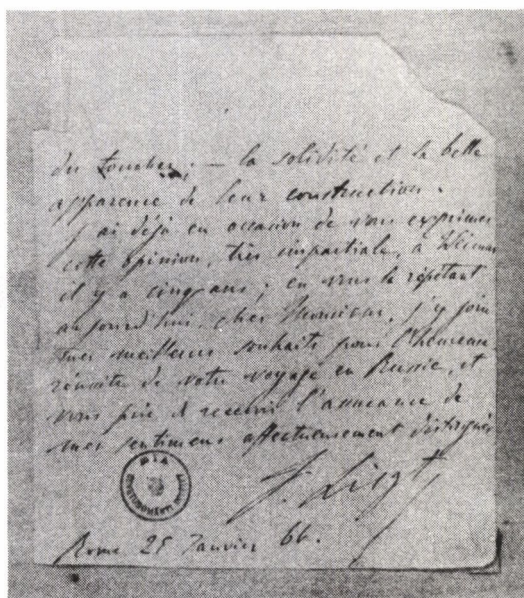 du toucher; — la solidité et la belle
apparence de leur construction.
J'ai déjà eu occasion de vous exprimer
cette opinion, très impartiale, à Weimar
il y a cinq ans; en vous la répétant
aujourd'hui, cher Monsieur, j'y joins
mes meilleurs souhaits pour l'heureuse
réussite de votre voyage en Russie, et
vous prie de recevoir l'assurance de
mes sentimens affectueusement distingués
F. Liszt
Rome 25 Janvier 66.